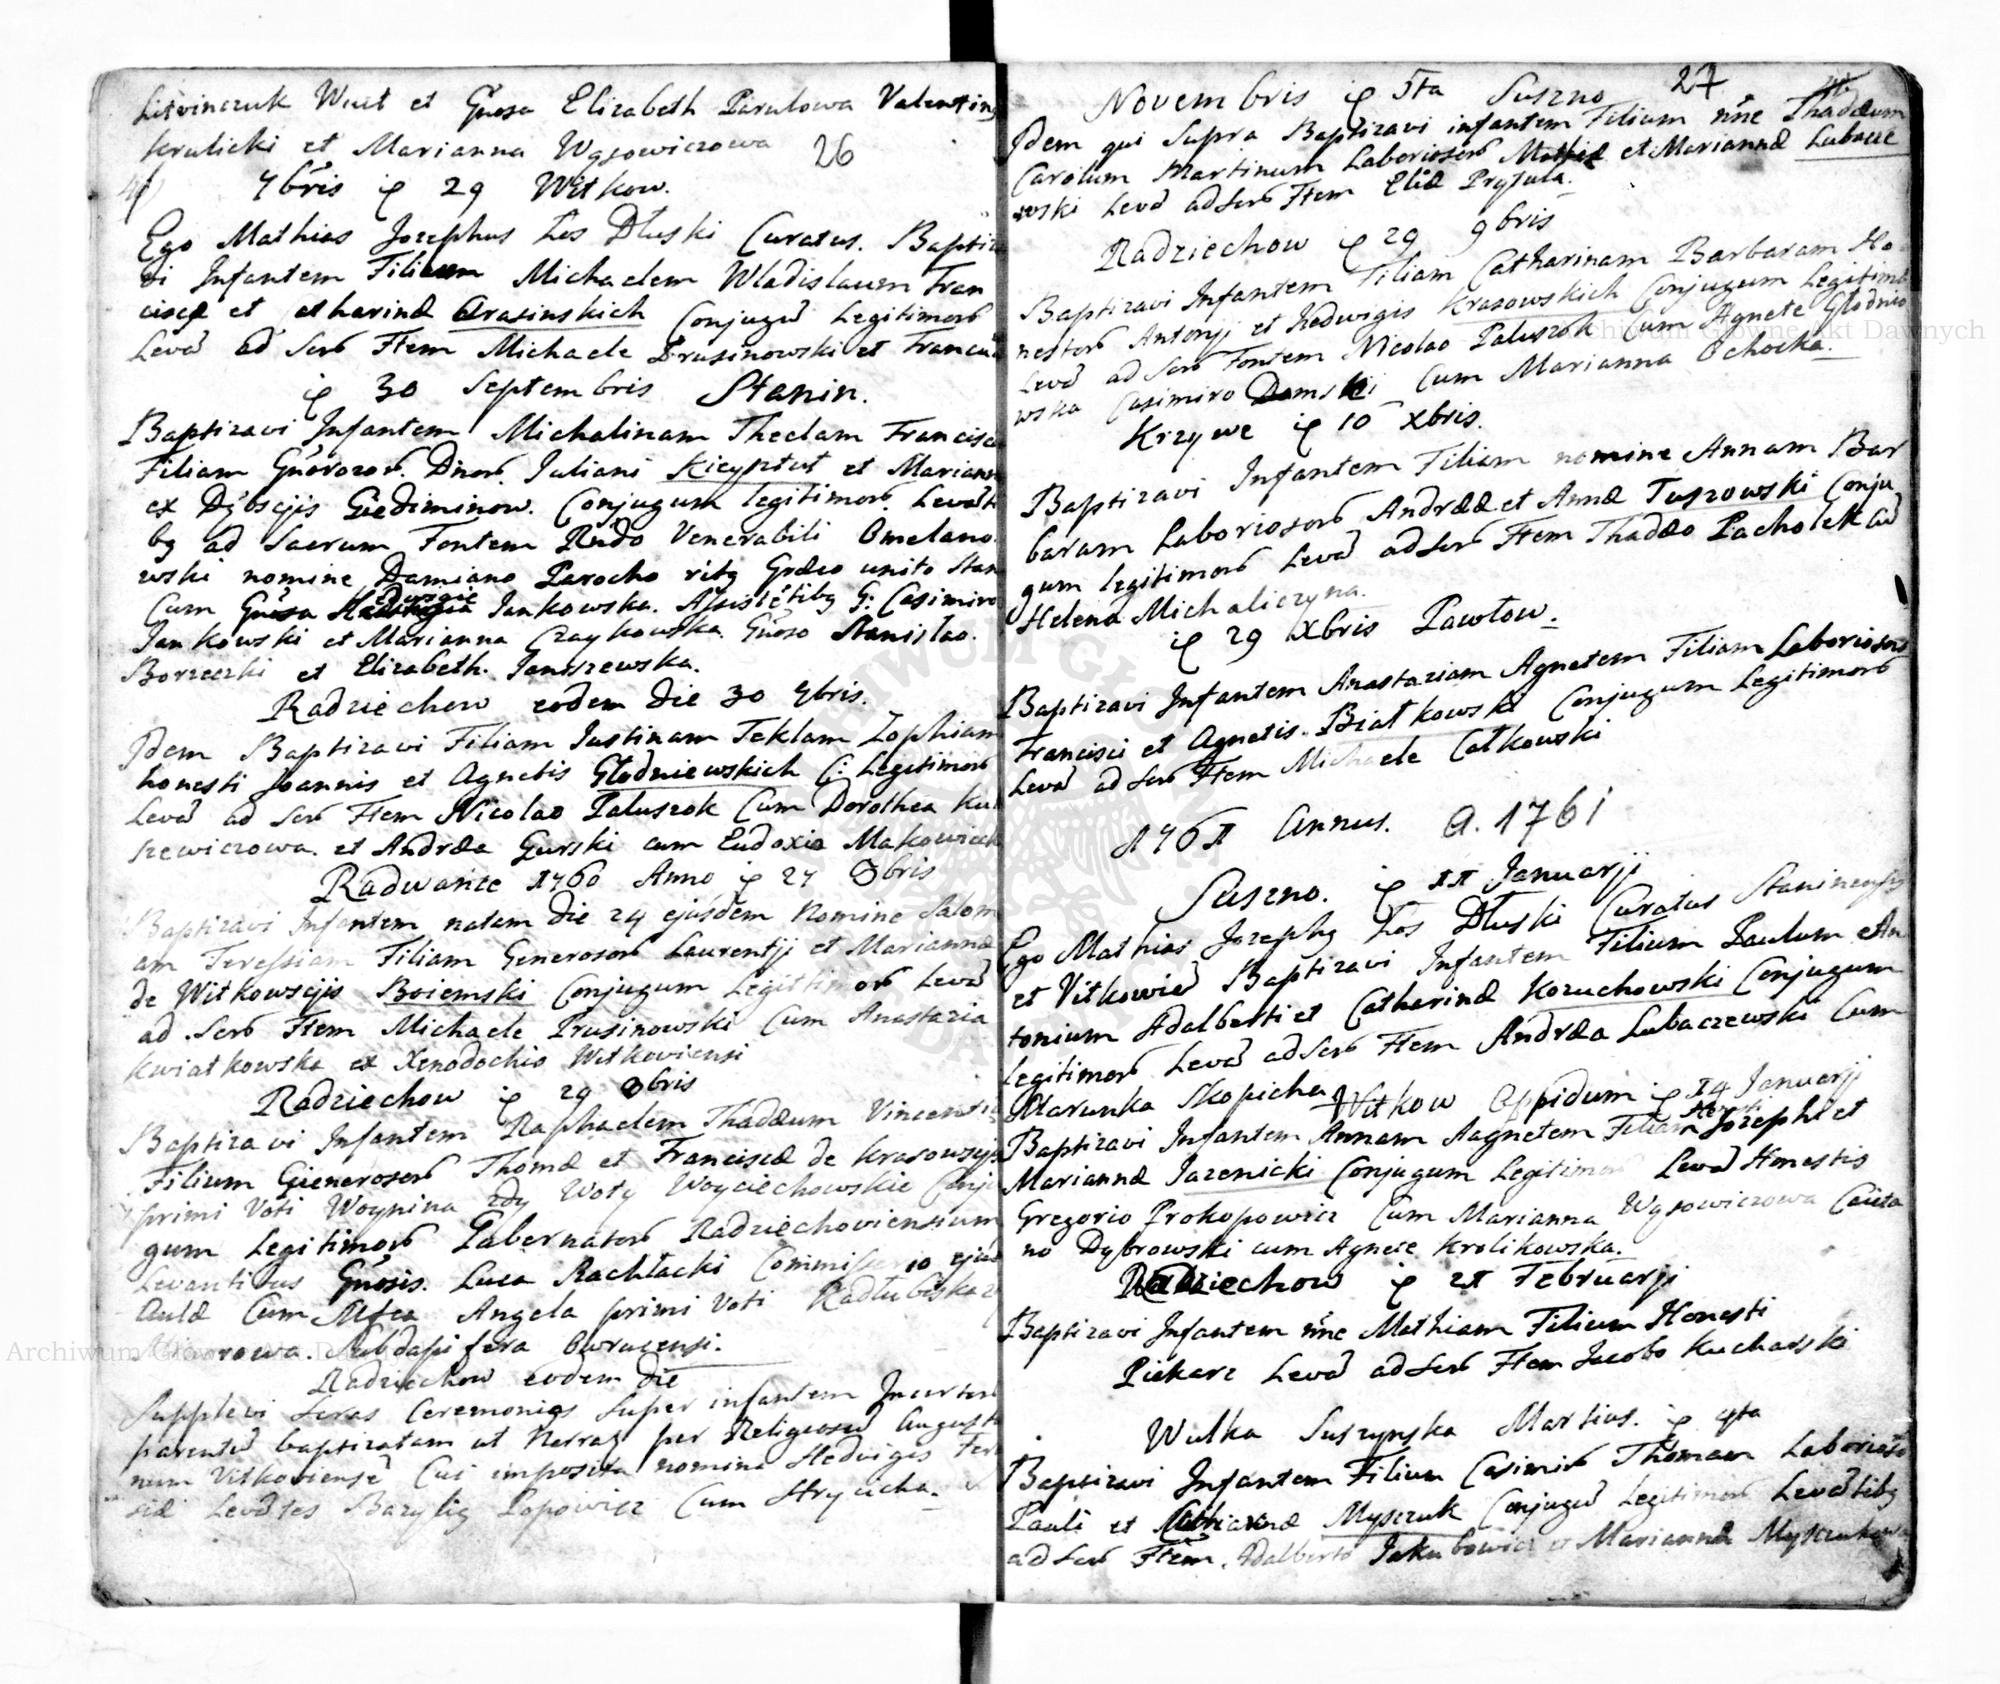 Litwinczuk Wuit et Gnosa Elizabeth Parulowa Valentin
Krulicki et Marianna Wąsowiczowa 26
7bris ip 29 Witkow.
Ego Mathias Josephus Łos Dłuski Curatus. Baptiza
vi Infantem Filium Michaelem Wladislaum Fran
ciscę et Catharinæ Arasinskich Conjugū Legitimorō
Levā ad Serō Ftem Michaele Prusinowski et Francis
ip 30 Septembris Stanin.
Baptizavi Infantem Michalinam Theclam Francisca
Filiam Gnorozorō. Dnorō. Juliani Kieyztut et Mariann
ex Dębscijs Giediminow. Conjugum legitimorō. Levāti
bq ad Sacrum Fontem Rndo Venerabili Omelano
wski nomine Damiano Parocho ritq Græco unito Stan
Cum Gnosa Hedwigie Jankowska. Assistētibq G: Casimiro
Jankowski et Marianna Czaykowska. Gnoso Stanisłao.
Borzeczki et Elizabeth. Janiszewska.
Radziechow eodem die 30 7bris.
Jdem Baptizavi Filiam Justinam Teklam Zophiam
honesti Joannis et Agnetis Głodniewskich C: Legitimorō
Levā ad Serō Ftem Nicolao Paluszok Cum Dorothea Ku
szewiczowa. et Andræa Gurski cum Eudoxia Makowieck
Radwańce 1760 Anno ip 27 8bris
Baptizavi Infantem natam die 24 ejusdem Nomine Salom
am Teressiam Filiam Generosorō Laurentji et Mariannæ
de Witkowscijs Boiemski Conjugum Legithimorō Levā
ad Serō Ftem Michaele Prusinowski Cum Anastazia
Kwiatkowska ex Xenodochio Witkoviensi
Radziechow ip 29 8bris
Baptizavi Infantem Raphaelem Thadæum Vincenti
Filium Gienerosorō Thomæ et Franciscæ de Krasowscijs
primi Voti Woynina 2dy Woty Woyciechowskie Conju
gum Legitimorō Gabernatorō Radziechoviensium
Levantibus Gnosis. Luca Rachłacki Commissario ejus
Aulæ Cum Mfca Angela primi Voti Radłubiska
Subdapifera Owrucensi.
Radziechow eodem die
Supplevi Seras Ceremonias Super infantem Jncertorō
parentū baptizatam ut Narraq per Religiosū Augusti
num Vitkoviensē Cui imposita nomina Hedvigis Tere
siæ Levātes Bazyliq Popowicz Cum Hrycicha.
Novembris ip 5ta Suszno 27
Jdem qui Supra Baptizavi infantem Filium nne Thadæum
Carolum Martinum Laboriosorō Mathiæ et Mariannæ Lubacze
wski Levā ad Serō Ftem Eliæ Prysula.
Radziechow ip 29 9bris
Baptizavi Infantem Filiam Catharinam Barbaram Ho
nestorō Antonij et Hedwigis Krasowskich Conjugum Legitimorō
Levā ad Serō Fontem Nicolao Paluszok Cum Agnete Głodnie
wska Casimiro Damski Cum Marianna Ochocka.
Krzywe ip 10 Xbris.
Baptizavi Infantem Filiam nomine Annam Bar
baram Laboriosorō Andrææ et Annæ Tuszowski Conju
gum legitimorō Levā ad Serō Ftem Thadæo Pacholek cū
Helena Michaliczyna.
ip 29 Xbris Pawłow.
Baptizavi Infantem Anastaziam Agnetem Filiam Laboriosorō
Francisci et Agnetis. Białkowski Conjugum Legitimorō
Levā ad Serō Ftem Michaele Całkowski
1761 Annus. A. 1761
Suszno. ip 11 Januarji
Ego Mathias Josephq Łos Dłuski Curatus Staninensis
et Vitkowień Baptizavi Infantem Filium Paulum An
tonium Adalberti et Catharinæ Kozuchowski Conjugum
legitimorō Levā ad Serō Ftem Andræa Lubaczewski Cum
Marunka Skopicha Witkow Oppidum ip 14 Januarji
Baptizavi Infantem Annam Aagnetem Filiam Honesti Jozephi et
Mariannæ Jazenicki Conjugum Legitimorō Levā Honestis
Gregorio Prokopowicz Cum Marianna Wąsowiczowa Caieta
no Dąbrowski cum Agnete Krolikowska.
Radziechow ip 21 Februarji
Baptizavi Infantem nne Mathiam Filium Honesti
Piekarz Levā ad Serō Ftem Jacobo Kucharski
Wulka Suszynska Martius. ip 4ta
Baptizavi Infantem Filium Casimirō Thomam Laboriosorō
Pauli et Mariannæ Myszczuk Conjugū Legitimorō Levātibq
ad Serō Ftem. Adalberto Jakubowicz et Marianna Myszczukowa
Archiwum Główne Akt Dawnych